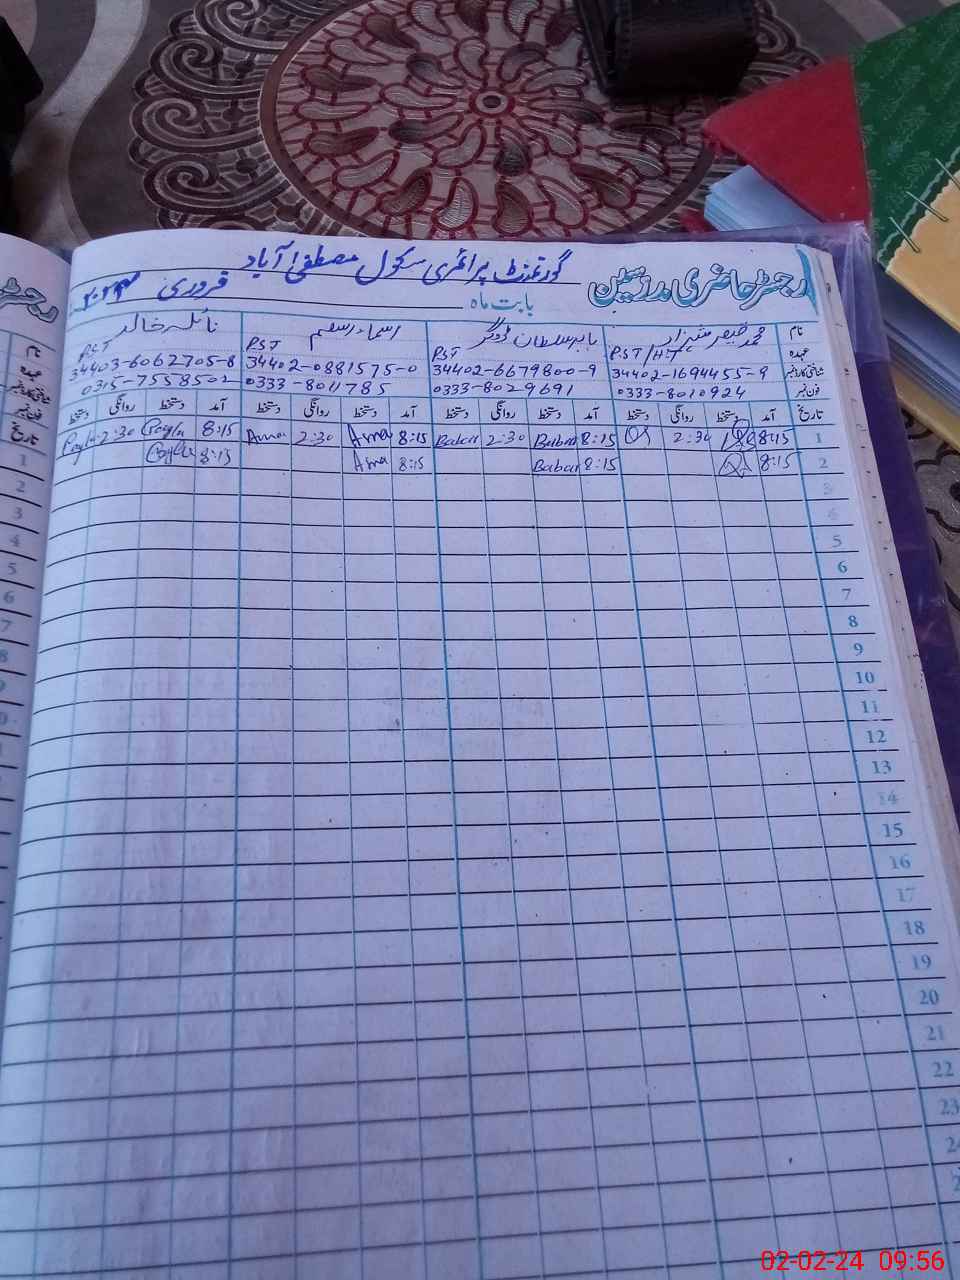 رجسٹر حاضری مدرسین گورنمنٹ پرائمری سکول مصطفیٰ آباد
بابت ماہ فروری ۲۰۲۴
نام محمد قیصر شہزاد بابر سلطان ڈوگر اسماء اسلم نائلہ خالد
عہدہ PST/HT PST PST PST
شناختی کارڈ نمبر 34402-1694455-9 34402-6679800-9 34402-0881575-0 34403-6062705-8
فون نمبر 0333-8010924 0333-8029691 0333-8011785 0315-7558502
تاریخ آمد دستخط روانگی دستخط آمد دستخط روانگی دستخط آمد دستخط روانگی دستخط آمد دستخط روانگی دستخط
1 8:15 2:30 8:15 Babar 2:30 Babar 8:15 Asma 2:30 Asma 8:15 2:30
2 8:15 8:15 Babar 8:15 Asma 8:15
3
4
5
6
7
8
9
10
11
12
13
14
15
16
17
18
19
20
21
22
23
نام
عہدہ
شناختی کارڈ نمبر
فون نمبر
تاریخ
1
2
3
4
5
6
7
8
02-02-24 09:56